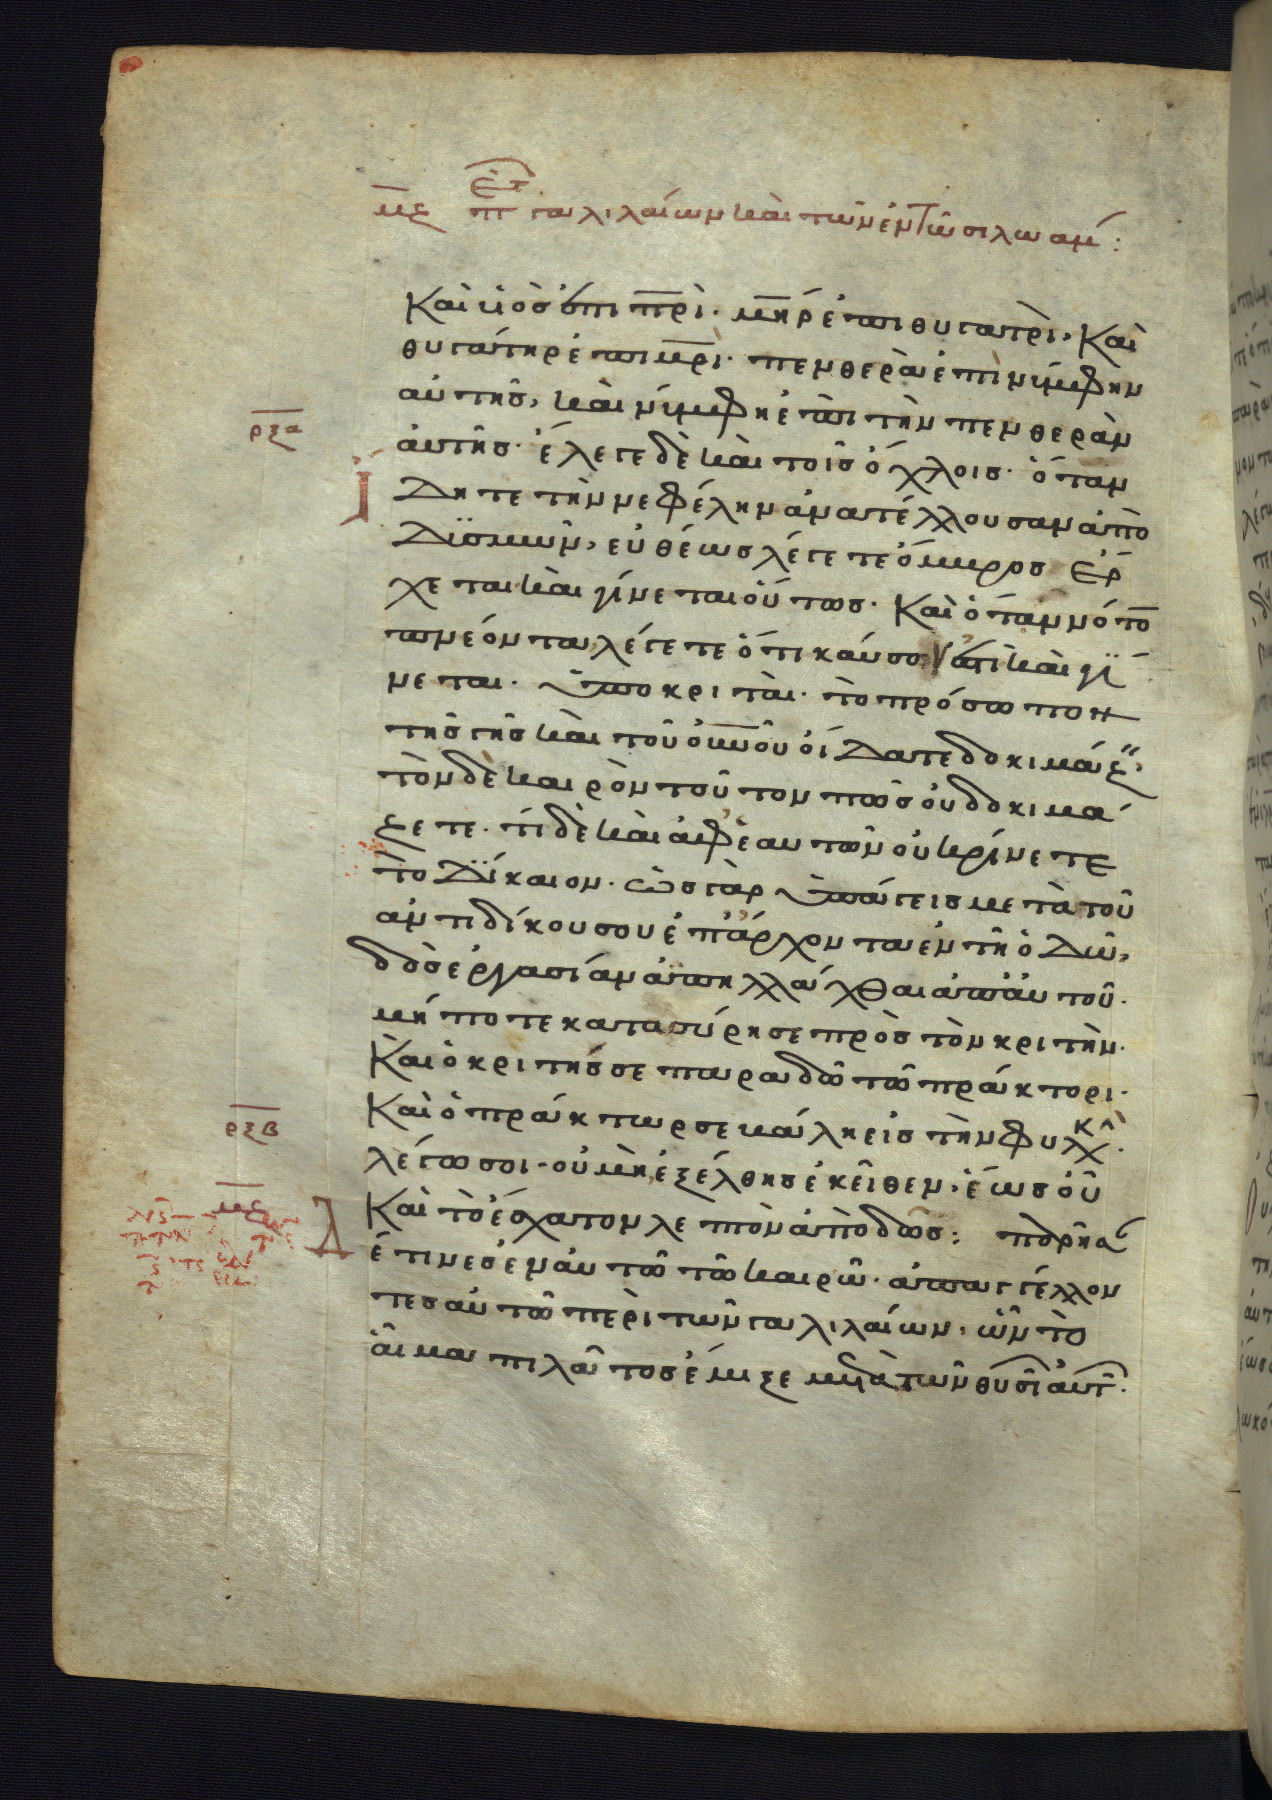 μϛ π̅ ἐτ γαλιλαίων καὶ τῶν ἐν τῶ σιλωάμ:
Καὶ υἱὸσ ἐπι πρ̅ὶ. μη̅ρ ἐπι θυγατρὶ, Καὶ
θυγάτηρ ἐπι μρ̅ι. πενθερὰ ἐπι νύμφην
αὐτῆσ, καὶ νύμφη ἐπι τὴν πενθερὰν
ρξα
ἀυτῆσ. ἔλεγε δὲ καὶ τοῖσ ὄχλοισ. ὅταν
ἴδητε τὴν νεφέλην ἀνατέλλουσαν ἀπὸ
δϋσμῶν, εὐθέωσ λέγετε ὄμβροσ ἔρ
χεται καὶ γίνεται οὕτωσ. Καὶ ὅταν νότο̅
πνέοντα λέγετε ὅτι καύσων ἔσται καὶ γί
νεται. ὑποκριταὶ. τὸ πρόσωπον
τῆσ γῆσ καὶ τοῦ ου̅νου οἴδατε δοκιμάζ
τὸν δὲ καιρὸν τοῦτον πῶσ ὀυ δοκιμά
ζετε. τί δὲ καὶ ἀφ' ἑαυτῶν οὐ κρίνετε
τὸ δΐκαιον. ὡσ γὰρ ὑπάγεισ μετὰ τοῦ
ἀντιδίκου σου ἐπ' ἄρχοντα ἐν τῆ ὁδῶ,
δὸσ ἐργασίαν ἀπηλλάχθαι ἀπ' ἀυτοῦ.
μήποτε κατασύρη σε πρὸσ τὸν κριτὴν.
Καὶ ὁ κριτήσ σε παραδῶ τῶ πράκτορι.
Καὶ ὁ πράκτωρ σε βάλη εἰσ τὴν φυλκ.
ρξβ
λέγω σοι. οὐ μὴ ἐξέλθησ ἐκεῖθεν, ἕωσ οὗ
μϛ
Καὶ τὸ ἔσχατον λεπτὸν ἀποδῶσ: παρῆσα
ἔτινεσ ἐν ἀυτῶ τῶ καιρῶ. ἀπαγγέλλον
τεσ αὐτῶ περὶ τῶν γαλιλαίων, ὧν τὸ
ἇιμα πιλᾶτοσ ἔμιξε μετὰ τῶν θυσῖ ἀυτ.